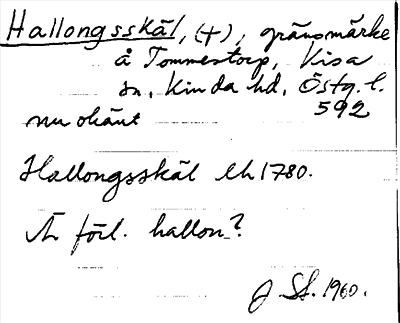 Hallongsskäl, (+), gränsmärke
å Tommestorp, Kisa
sn, Kinda hd, Östg. l.
nu okänt 592
Hallongsskäl Lh 1780.
förl. hallon-?
J. St. 1960.